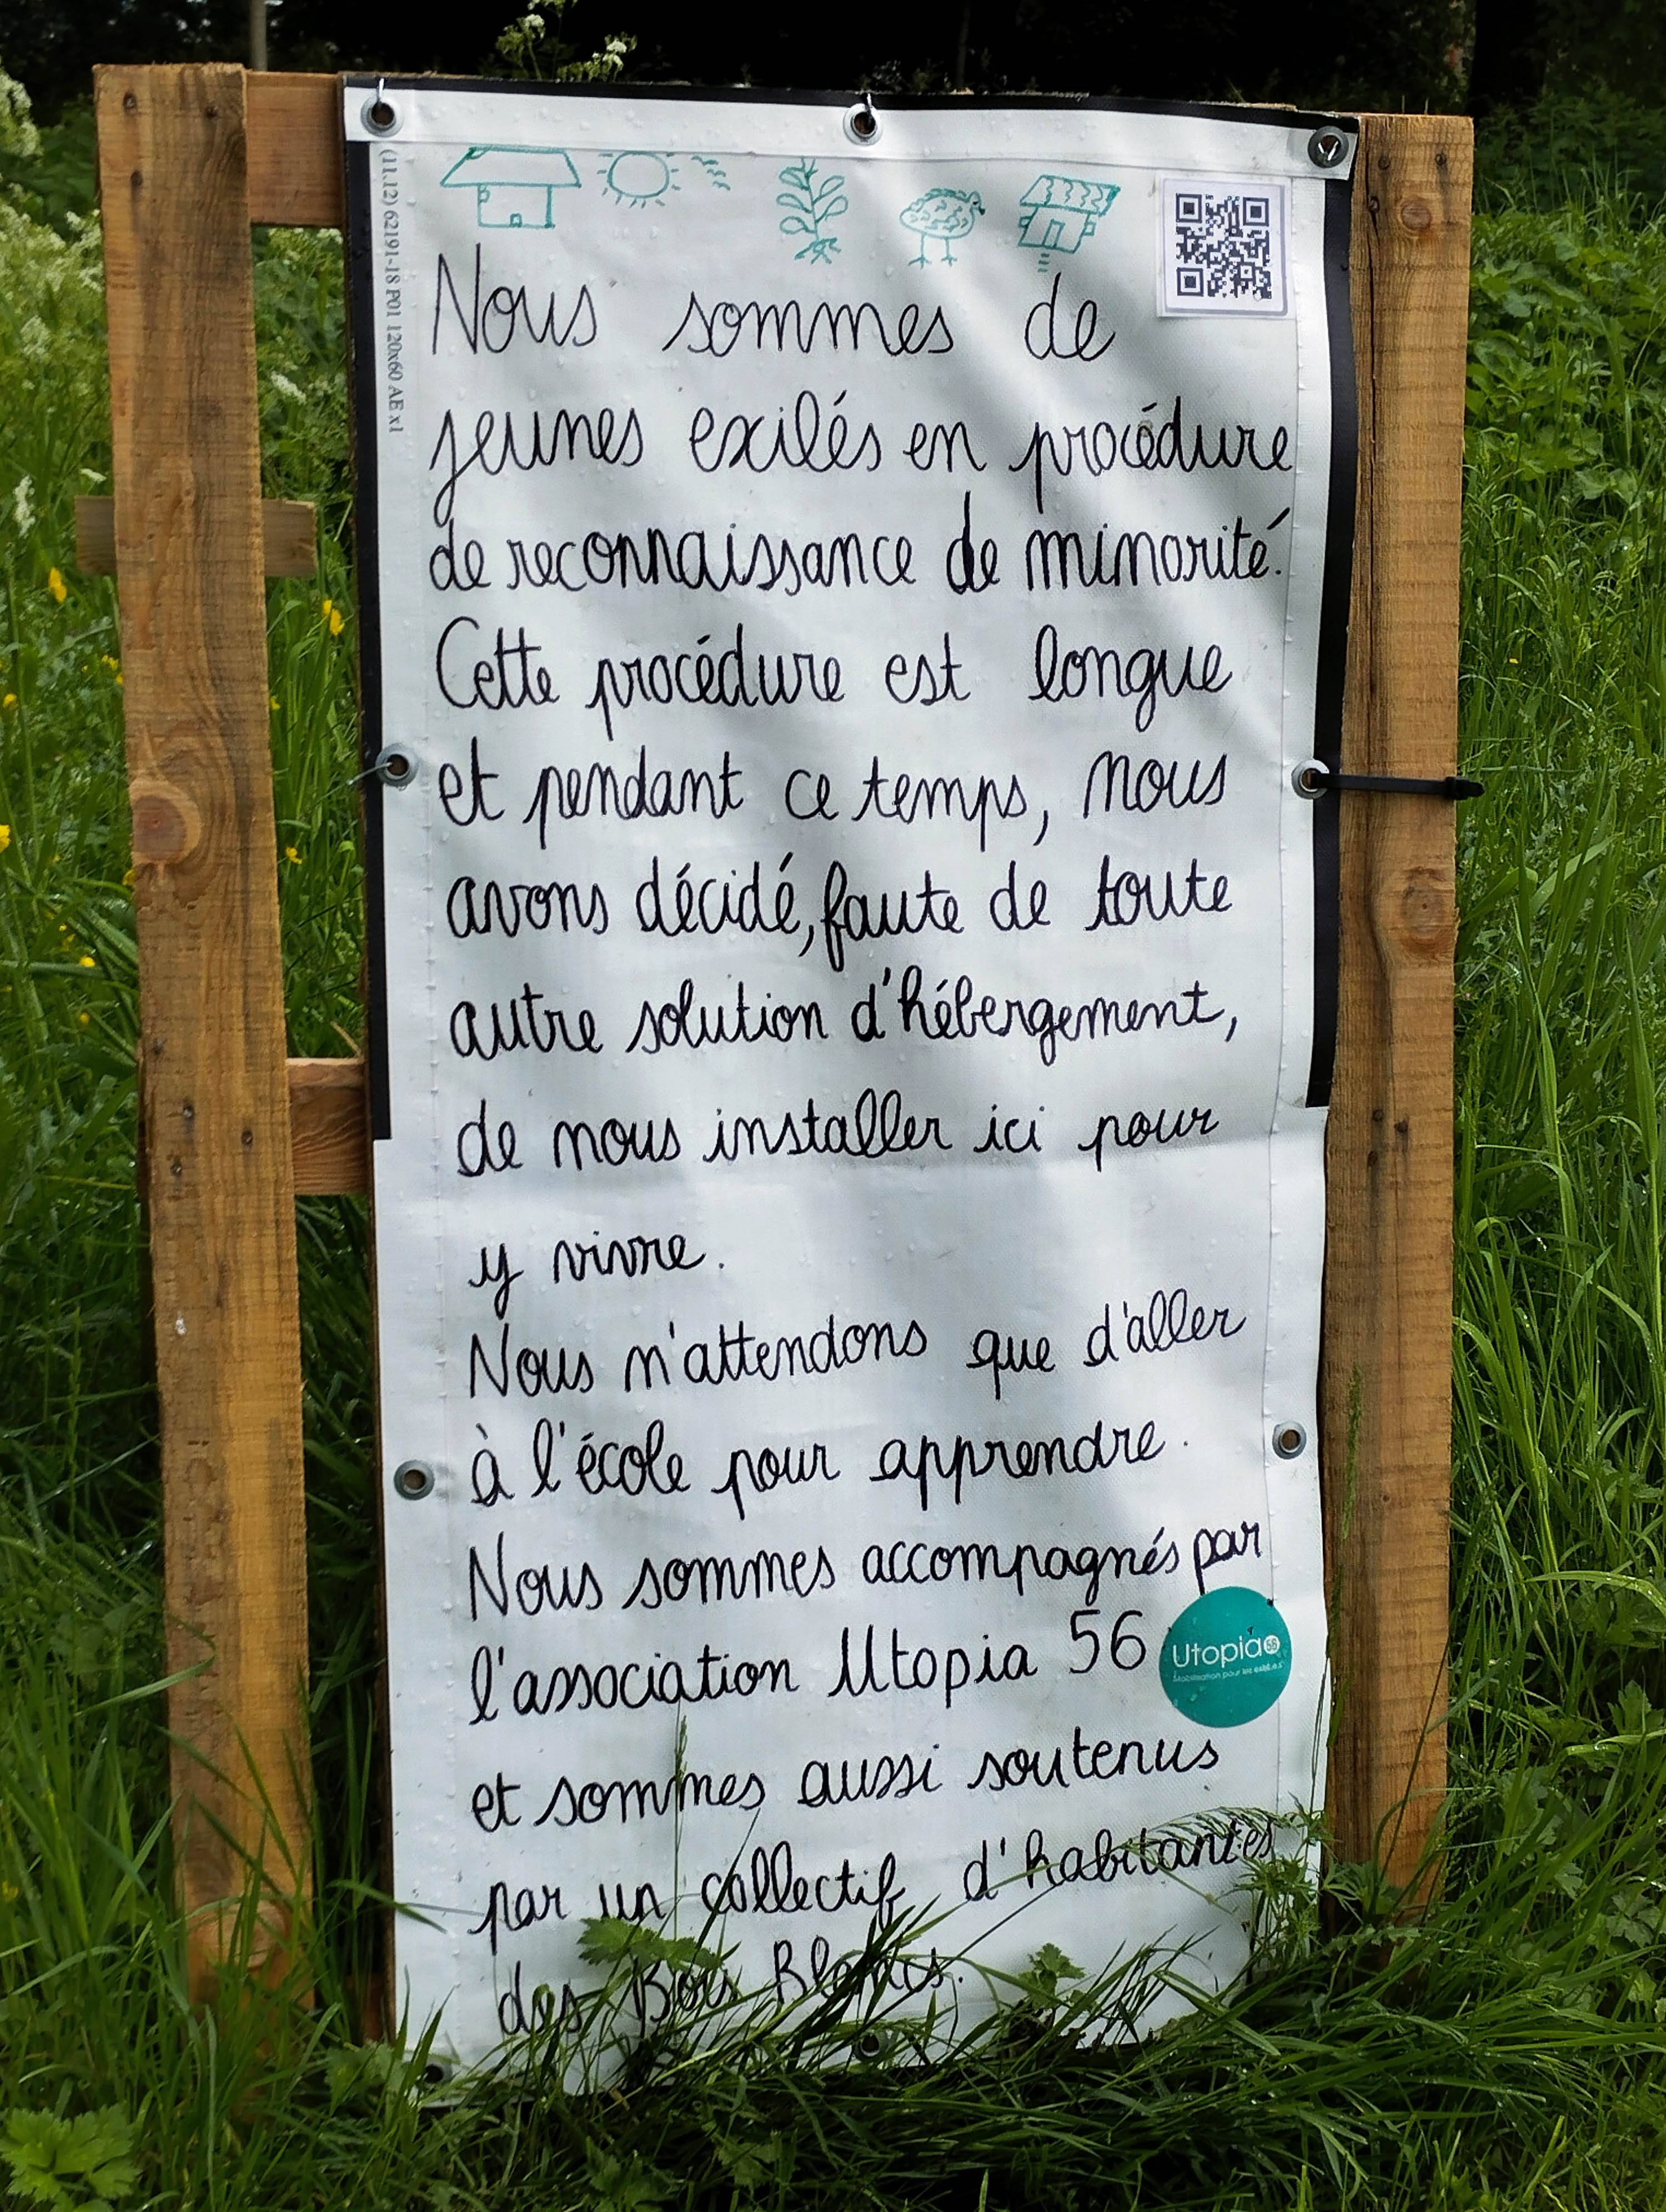 (11.12) 62191-18 P01 120x60 AE x1
Nous sommes de
jeunes exilés en procédure
de reconnaissance de minorité.
Cette procédure est longue
et pendant ce temps, nous
avons décidé, faute de toute
autre solution d'hébergement,
de nous installer ici pour
y vivre.
Nous n'attendons que d'aller
à l'école pour apprendre.
Nous sommes accompagnés par
l'association Utopia 56
Utopia 56
Mobilisation pour les exilé.e.s
et sommes aussi soutenus
par un collectif d'habitantes
des Bois Blancs.